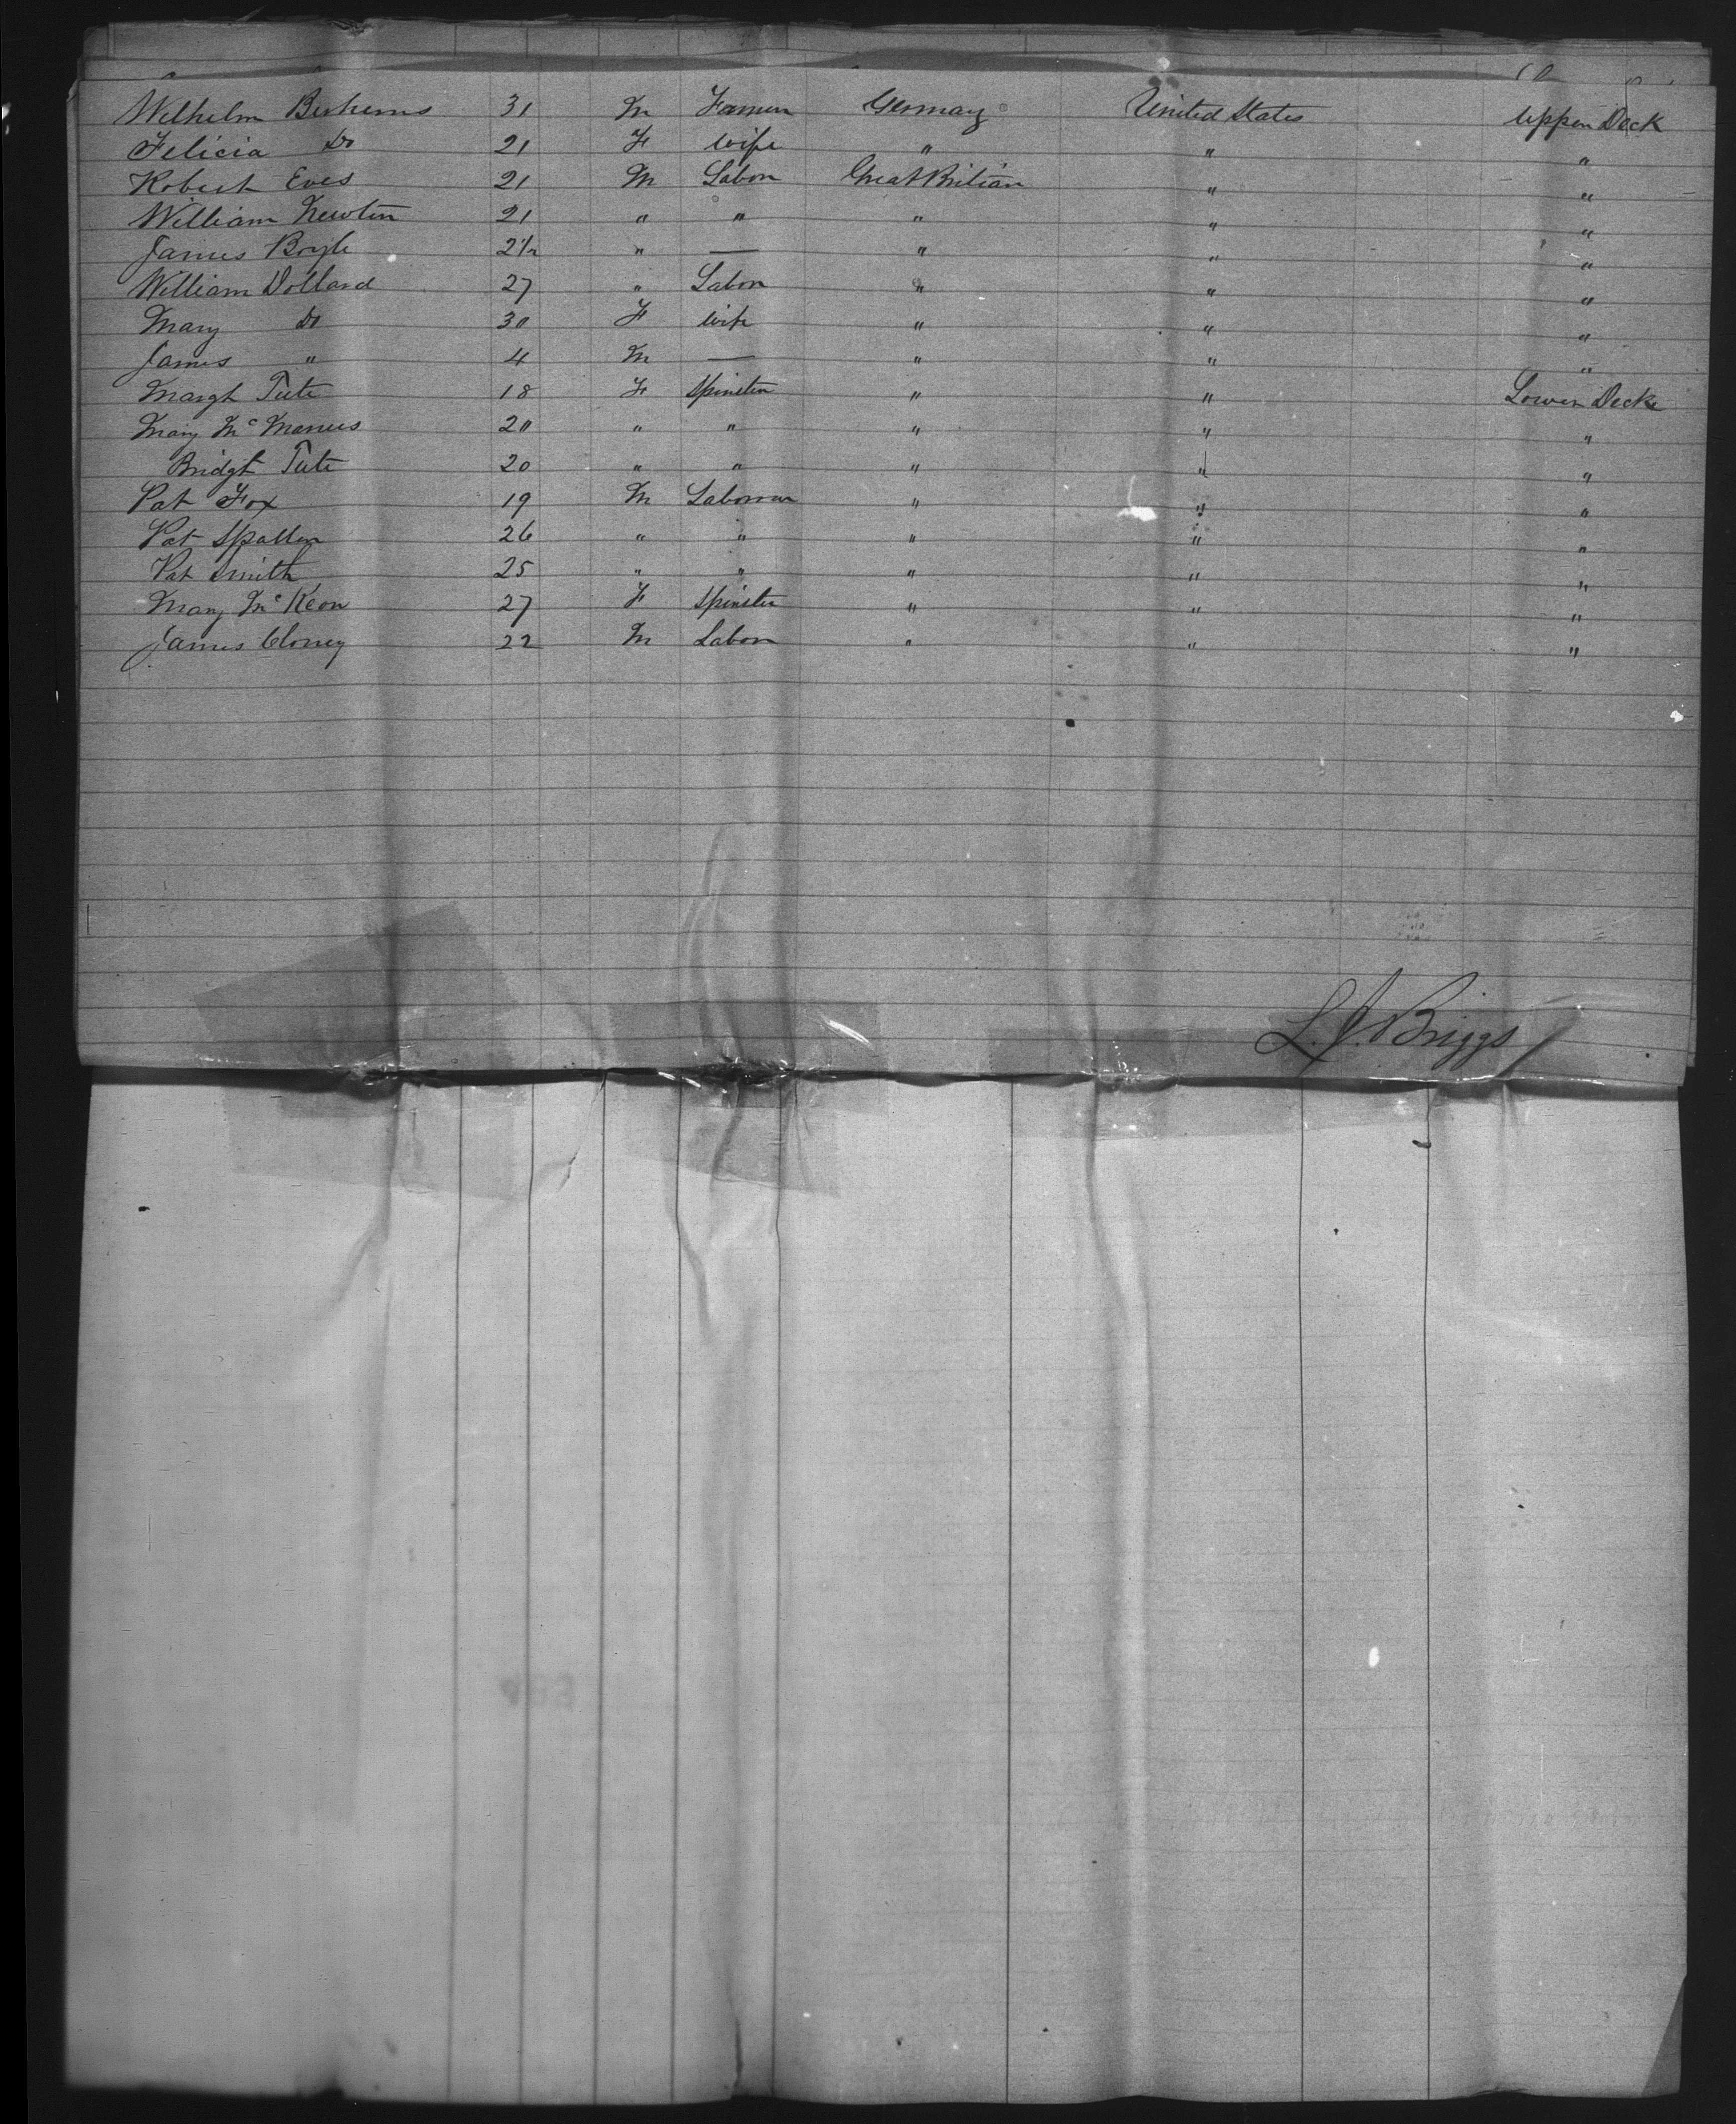 Wilhelm 31 M Farmer Germany United States Upper Deck
Felicia Do 21 F wife " " "
Robert Eves 21 M Labor Great Britian " "
William Newton 21 " " " " "
James Boyle 2½ " — " " "
William Dollard 27 " Labor " " "
Mary Do 30 F wife " " "
James " 4 M — " " "
Margt Tute 18 F Spinster " " Lower Deck
Mary McManus 20 " " " " "
Bridgt Tute 20 " " " " "
Pat Fox 19 M Laborer " " "
Pat Spallen 26 " " " " "
Pat Smith 25 " " " " "
Mary McKeon 27 F Spinster " " "
James Cloney 22 M Labor " " "
L. J. Briggs